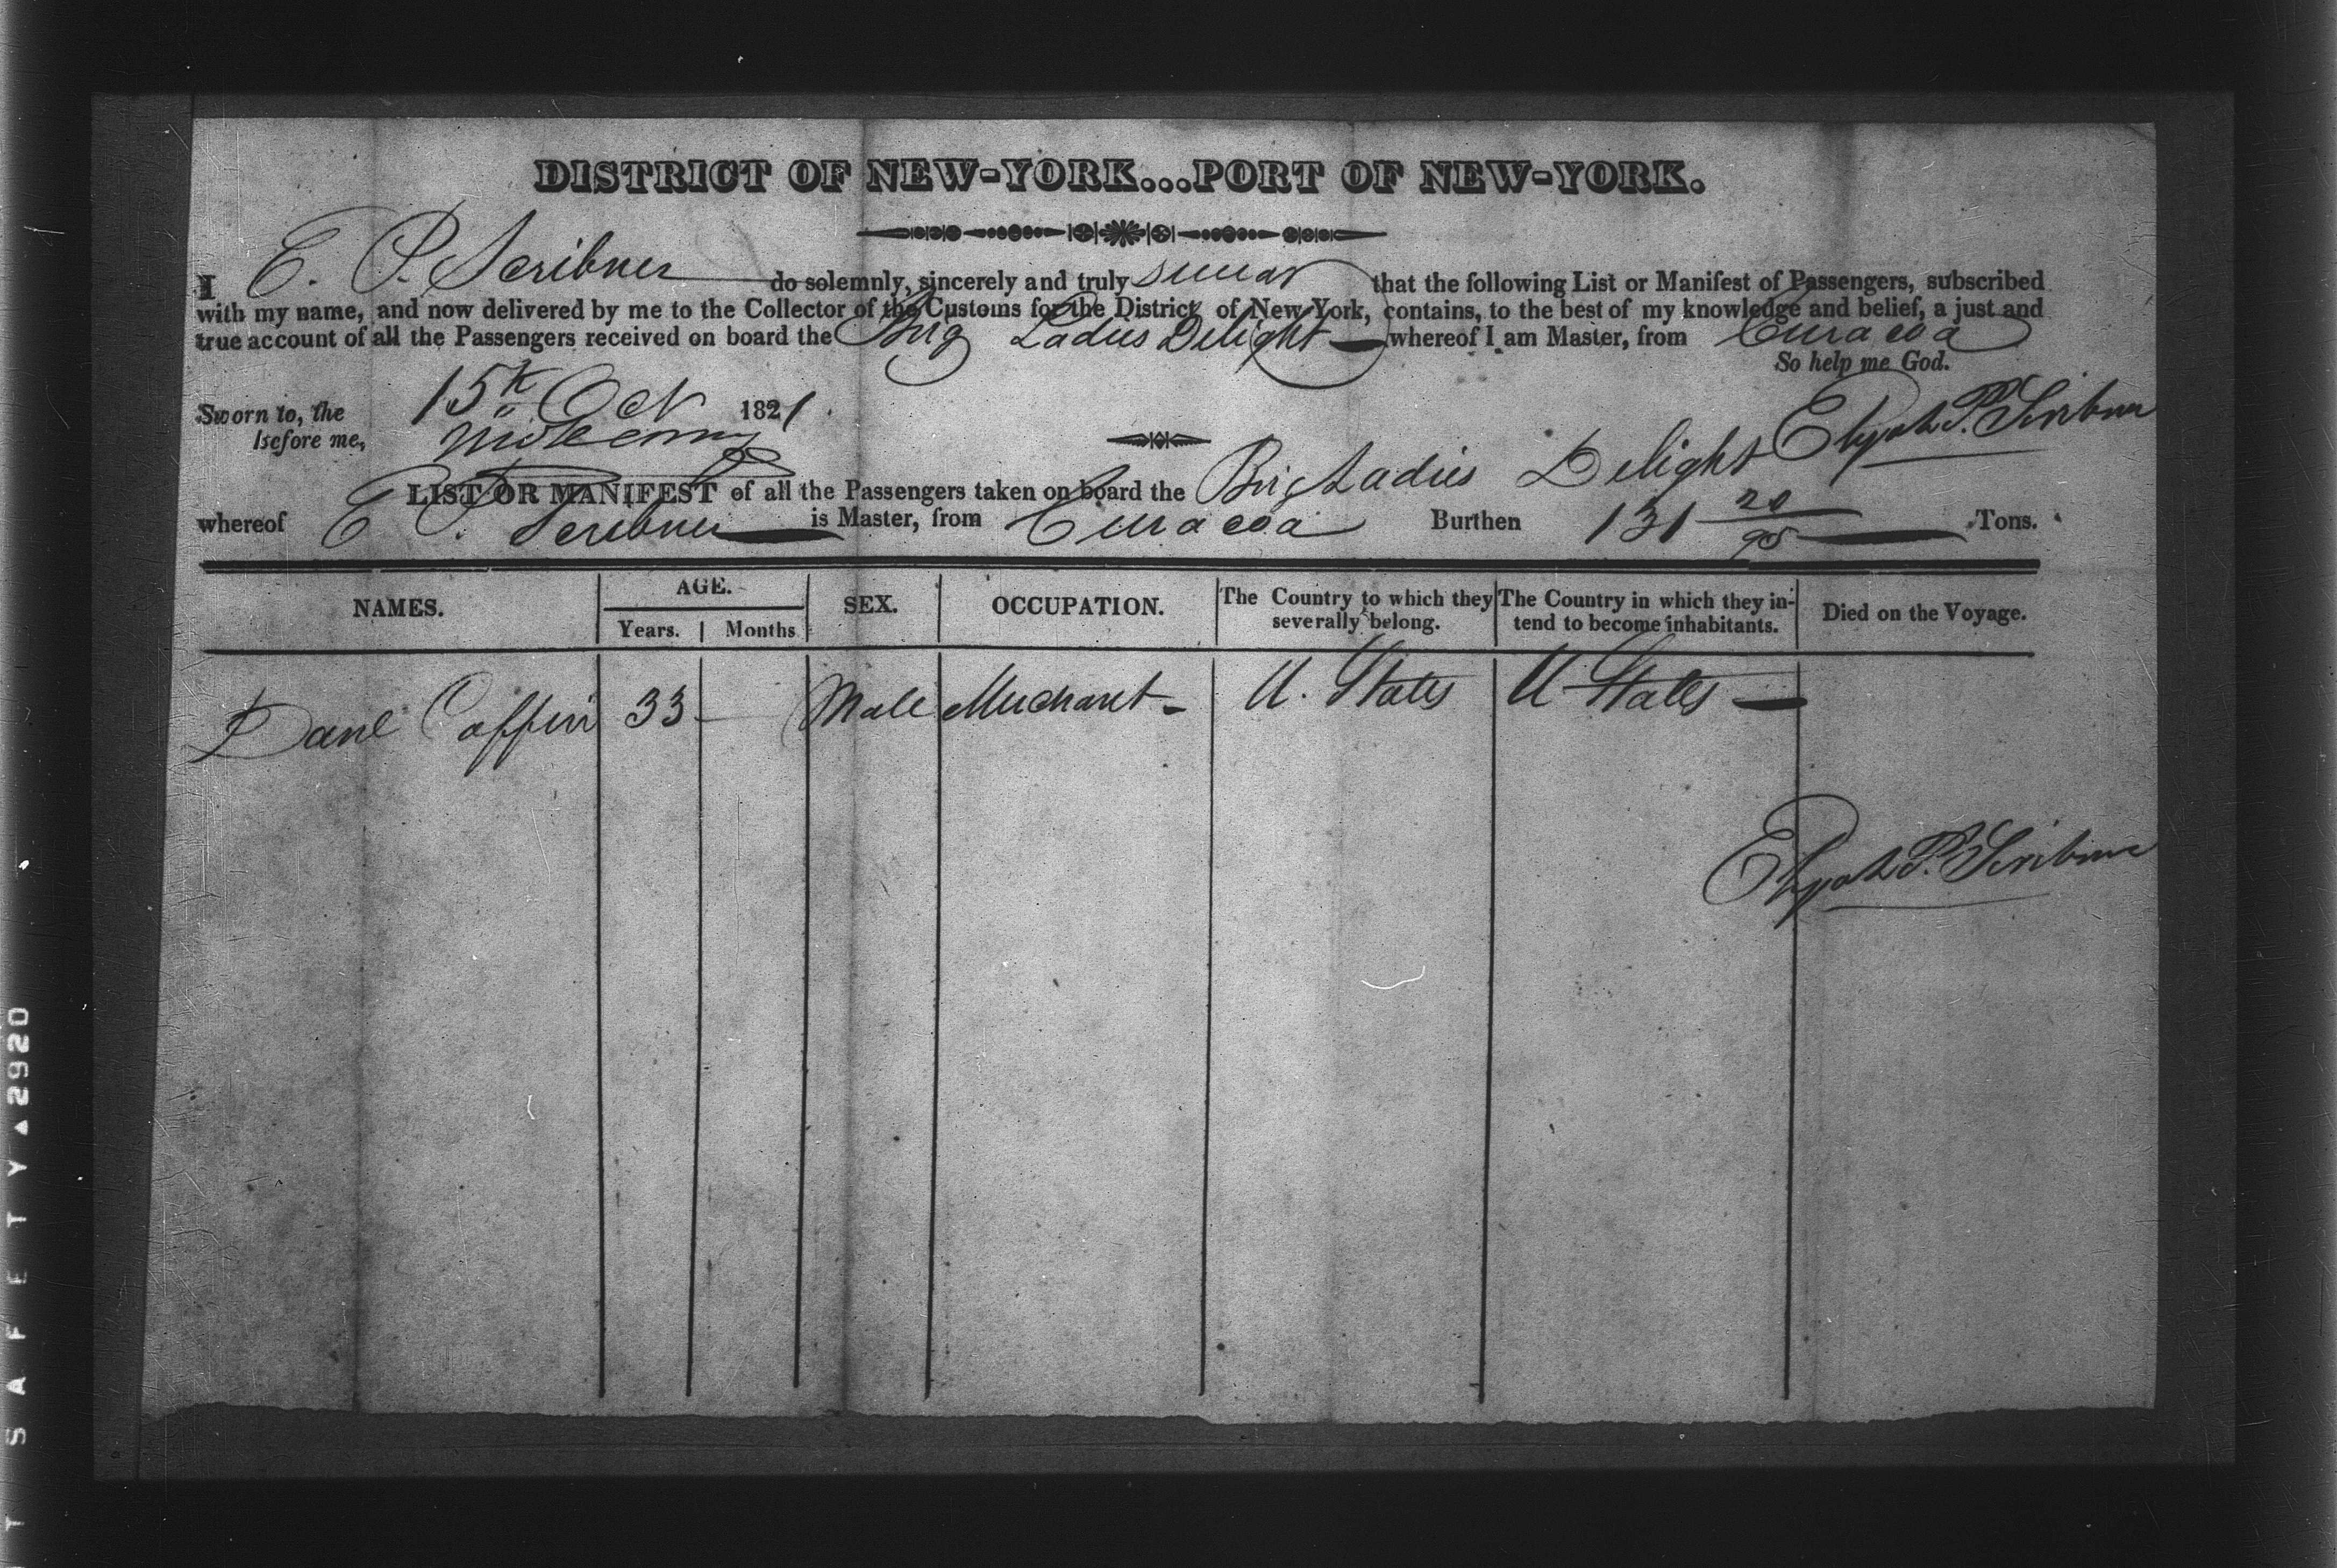 DISTRICT OF NEW-YORK...PORT OF NEW-YORK.
I E. P. Scribner do solemnly, sincerely and truly swear that the following List or Manifest of Passengers, subscribed
with my name, and now delivered by me to the Collector of the Customs for the District of New York, contains, to the best of my knowledge and belief, a just and
true account of all the Passengers received on board the Brig Ladies Delight whereof I am Master, from Curacoa
So help me God.
Sworn to, the 15th Oct 1821.
before me,
Elijah P. Scribner
LIST OR MANIFEST of all the Passengers taken on board the Brig Ladies Delight
whereof E P. Scribner is Master, from Curacoa Burthen 131 20/95 Tons.
NAMES. AGE. SEX. OCCUPATION. The Country to which they severally belong. The Country in which they in-tend to become inhabitants. Died on the Voyage.
Years. Months
Danl Coffin 33 — Male Merchant - U. States U States —
Elijah P. Scribner
SAFETY▲2920